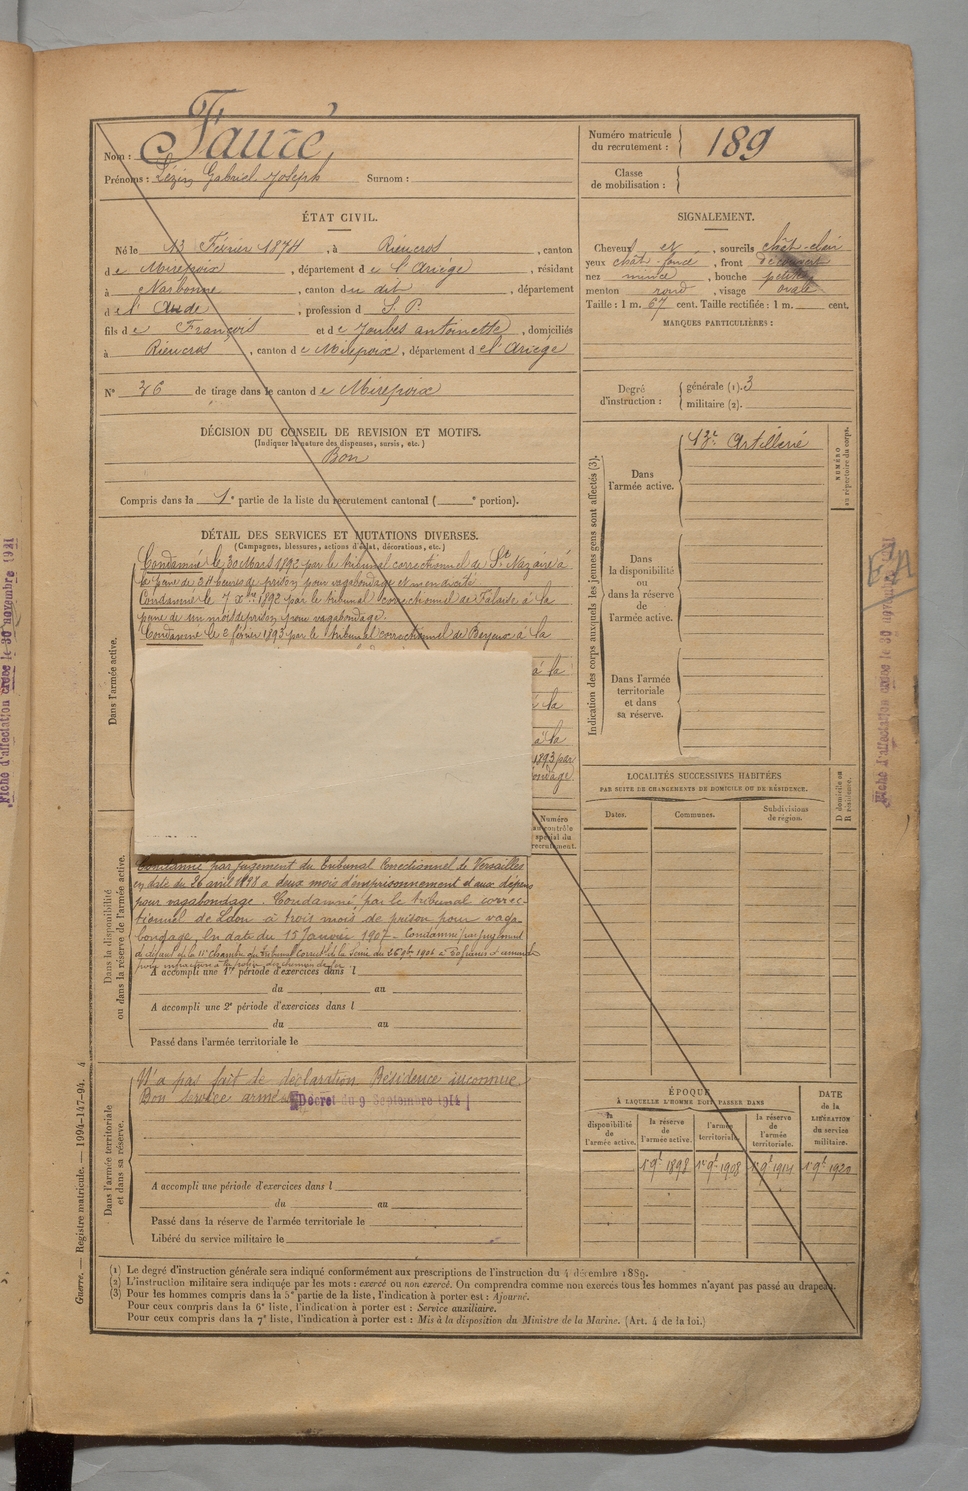 Nom : Fauré
Prénoms : Lézin Gabriel Joseph Surnom :
Numéro matricule du recrutement : 189
Classe de mobilisation :
ÉTAT CIVIL.
Né le 13 Février 1874, à Rieucros, canton
de Mirepoix, département de l'Ariège, résidant
à Narbonne, canton du dit, département
de l'Aude, profession d S. P.
fils de François et de Joubès antoinette, domiciliés
à Rieucros, canton de Mirepoix, département de l'Ariège
N° 36 de tirage dans le canton de Mirepoix
SIGNALEMENT.
Cheveux et, sourcils chât-clair
yeux chât-foncé, front découvert
nez mince, bouche petite
menton rond, visage ovale
Taille : 1 m. 67 cent. Taille rectifiée : 1 m. cent.
MARQUES PARTICULIÈRES :
Degré d'instruction : générale (1). 3
militaire (2).
DÉCISION DU CONSEIL DE REVISION ET MOTIFS.
(Indiquer la nature des dispenses, sursis, etc.)
Bon
Compris dans la 1e partie de la liste du recrutement cantonal ( e portion).
Indication des corps auxquels les jeunes gens sont affectés (3).
NUMÉRO au répertoire du corps.
Dans l'armée active. Artillerie
Dans la disponibilité ou dans la réserve de l'armée active.
Dans l'armée territoriale et dans sa réserve.
DÉTAIL DES SERVICES ET MUTATIONS DIVERSES.
(Campagnes, blessures, actions d'éclat, décorations, etc.)
Dans l'armée active.
Condamné le 30 Mars 1892 par le tribunal correctionnel de St Nazaire à
la peine de 24 heures de prison pour vagabondage et mendicité.
Condamné le 7 Xbre 1892 par le tribunal correctionnel de Falaise à la
peine de un mois de prison pour vagabondage.
Condamné le 2 février 1893 par le tribunal correctionnel de Bayeux à la
à la
à la
à la
1893 par
Numéro au contrôle spécial du recrutement.
LOCALITÉS SUCCESSIVES HABITÉES
PAR SUITE DE CHANGEMENTS DE DOMICILE OU DE RÉSIDENCE.
Dates. Communes. Subdivisions de région. D domicile ou R résidence.
Dans la disponibilité ou dans la réserve de l'armée active.
Condamné par jugement du Tribunal Correctionnel de Versailles
en date du 26 avril 1898 a deux mois d'emprisonnement et aux dépens
pour vagabondage. Condamné par le tribunal correc-
tionnel de Laon à trois mois de prison pour vaga-
bondage, en date du 15 Janvier 1907. Condamné par jugement
de défaut de la 11e chambre du tribunal Correctel de la Seine du 1906 à 50 francs d'amende
A accompli une 1re période d'exercices dans l
du au
A accompli une 2e période d'exercices dans l
du au
Passé dans l'armée territoriale le
Dans l'armée territoriale et dans sa réserve.
N'a pas fait de déclaration Résidence inconnue
Bon service armé Décret du 9 Septembre 1914
A accompli une période d'exercices dans l
du au
Passé dans la réserve de l'armée territoriale le
Libéré du service militaire le
ÉPOQUE
À LAQUELLE L'HOMME DOIT PASSER DANS
la disponibilité de l'armée active.
la réserve de l'armée active.
l'armée territoriale.
la réserve de l'armée territoriale.
DATE de la LIBÉRATION du service militaire.
1er 9bre 1898 1er 9bre 1908 1er 9bre 1914 1er 9bre 1920
(1) Le degré d'instruction générale sera indiqué conformément aux prescriptions de l'instruction du 4 décembre 1889.
(2) L'instruction militaire sera indiquée par les mots : exercé ou non exercé. On comprendra comme non exercés tous les hommes n'ayant pas passé au drapeau.
(3) Pour les hommes compris dans la 5e partie de la liste, l'indication à porter est : Ajourné.
Pour ceux compris dans la 6e liste, l'indication à porter est : Service auxiliaire.
Pour ceux compris dans la 7e liste, l'indication à porter est : Mis à la disposition du Ministre de la Marine. (Art. 4 de la loi.)
Guerre. — Registre matricule. — 1994-147-94. 4
Fiche d'affectation créée le 30 novembre 1921
Fiche d'affectation créée le 30 novembre 1921